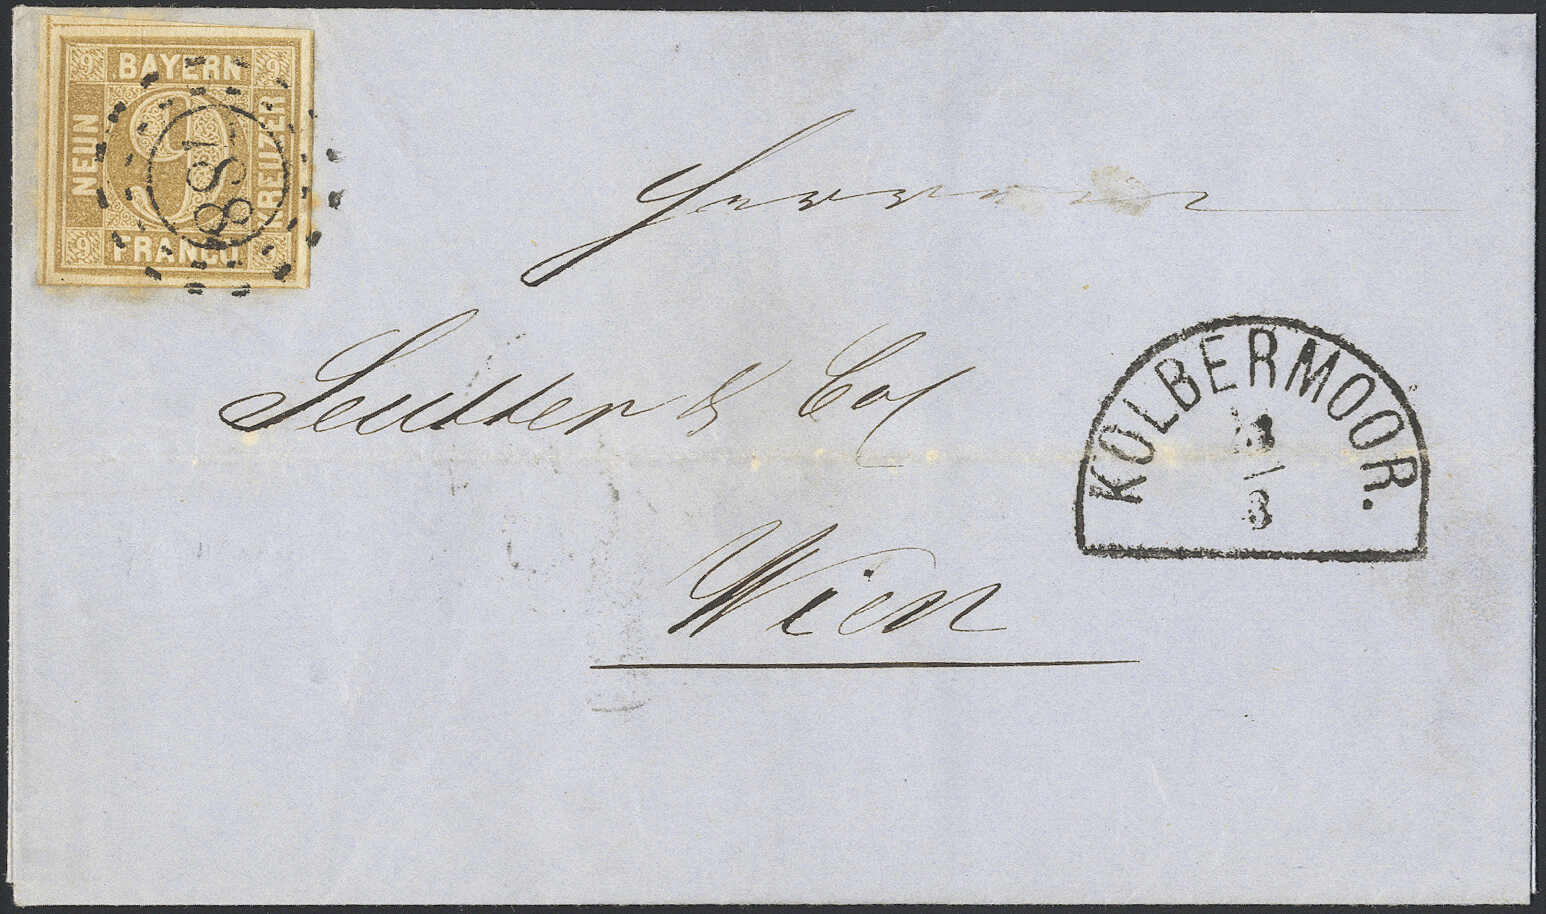 9 BAYERN 9
NEUN
KREUZER
9 FRANCO 9
Herren
Seutter & Co/
Wien
KOLBERMOOR.
3